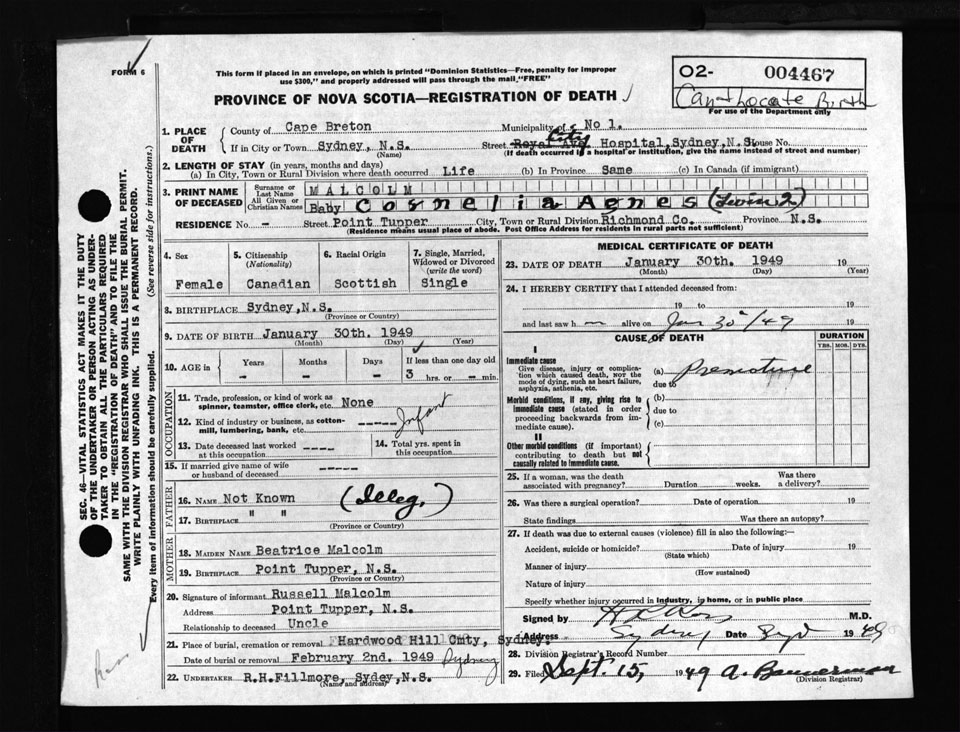 FORM 6
This form if placed in an envelope, on which is printed "Dominion Statistics—Free, penalty for improper
use $300," and properly addressed will pass through the mail, "FREE"
PROVINCE OF NOVA SCOTIA—REGISTRATION OF DEATH
O2- 004467
Birth
For use of the Department only
1. PLACE OF DEATH
County of Cape Breton Municipality of No 1.
If in City or Town Sydney, N.S. Street Royal Ave City Hospital, Sydney, N.S. House No.
(Name) (If death occurred in a hospital or institution, give the name instead of street and number)
2. LENGTH OF STAY (in years, months and days)
(a) In City, Town or Rural Division where death occurred Life (b) In Province Same (c) In Canada (if immigrant)
3. PRINT NAME OF DECEASED
Surname or Last Name MALCOLM
All Given or Christian Names Baby Cornelia Agnes (Twin 2)
RESIDENCE No. - Street Point Tupper City, Town or Rural Division Richmond Co. Province N.S.
(Residence means usual place of abode. Post Office Address for residents in rural parts not sufficient)
4. Sex
Female
5. Citizenship
(Nationality)
Canadian
6. Racial Origin
Scottish
7. Single, Married,
Widowed or Divorced
(write the word)
Single
8. BIRTHPLACE Sydney, N.S.
(Province or Country)
9. DATE OF BIRTH January 30th. 1949
(Month) (Day) (Year)
10. AGE in
Years
-
Months
-
Days
-
If less than one day old
3 hrs. or - min.
OCCUPATION
11. Trade, profession, or kind of work as
spinner, teamster, office clerk, etc. None
12. Kind of industry or business, as cotton-
mill, lumbering, bank, etc. ----- Infant
13. Date deceased last worked
at this occupation ----
14. Total yrs. spent in
this occupation
15. If married give name of wife
or husband of deceased -----
FATHER
16. NAME Not Known (Illeg.)
17. BIRTHPLACE " "
(Province or Country)
MOTHER
18. MAIDEN NAME Beatrice Malcolm
19. BIRTHPLACE Point Tupper, N.S.
(Province or Country)
20. Signature of informant Russell Malcolm
Address Point Tupper, N.S.
Relationship to deceased Uncle
21. Place of burial, cremation or removal Hardwood Hill Cmty, Sydney.
Date of burial or removal February 2nd. 1949 Sydney
22. UNDERTAKER R.H.Fillmore, Sydey,N.S.
(Name and address)
MEDICAL CERTIFICATE OF DEATH
23. DATE OF DEATH January 30th. 1949 19
(Month) (Day) (Year)
24. I HEREBY CERTIFY that I attended deceased from:
19 to 19
and last saw h — alive on Jan 30/49 19
CAUSE OF DEATH
DURATION
YRS. MOS. DYS.
I
Immediate cause
Give disease, injury or complica-
tion which caused death, NOT the
mode of dying, such as heart failure,
asphyxia, asthenia, etc.
(a) Premature
due to
Morbid conditions, if any, giving rise to
immediate cause (stated in order
proceeding backwards from im-
mediate cause).
(b)
due to
(c)
II
Other morbid conditions (if important)
contributing to death but not
causally related to immediate cause.
25. If a woman, was the death
associated with pregnancy? Duration weeks. Was there
a delivery?
26. Was there a surgical operation? Date of operation 19
State findings Was there an autopsy?
27. If death was due to external causes (violence) fill in also the following:—
Accident, suicide or homicide? Date of injury 19
(State which)
Manner of injury
(How sustained)
Nature of injury
Specify whether injury occurred in industry, in home, or in public place
Signed by M.D.
Address Sydney Date 1949
28. Division Registrar's Record Number
29. Filed Sept. 15, 1949 A. Bannerman
(Division Registrar)
SEC. 46—VITAL STATISTICS ACT MAKES IT THE DUTY
OF THE UNDERTAKER OR PERSON ACTING AS UNDER-
TAKER TO OBTAIN ALL THE PARTICULARS REQUIRED
IN THE "REGISTRATION OF DEATH" AND TO FILE THE
SAME WITH THE DIVISION REGISTRAR WHO SHALL ISSUE THE BURIAL PERMIT.
WRITE PLAINLY WITH UNFADING INK. THIS IS A PERMANENT RECORD.
Every item of information should be carefully supplied. (See reverse side for instructions.)